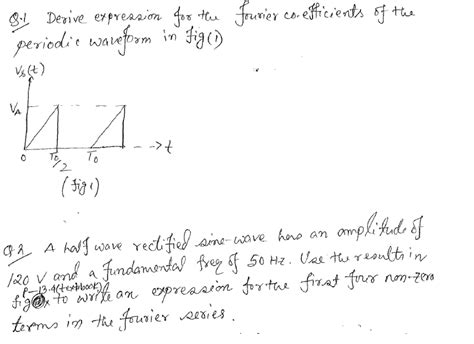 Q.1 Derive expression for the fourier co-efficients of the
periodic waveform in Fig(1)
Vs(t)
VA
0 To/2 To t
(Fig 1)
Q.2 A half wave rectified sine-wave has an amplitude of
120 V and a fundamental freq of 50 Hz. Use the results in
P-13.4(textbook)
fig to write an expression for the first four non-zero
terms in the fourier series.